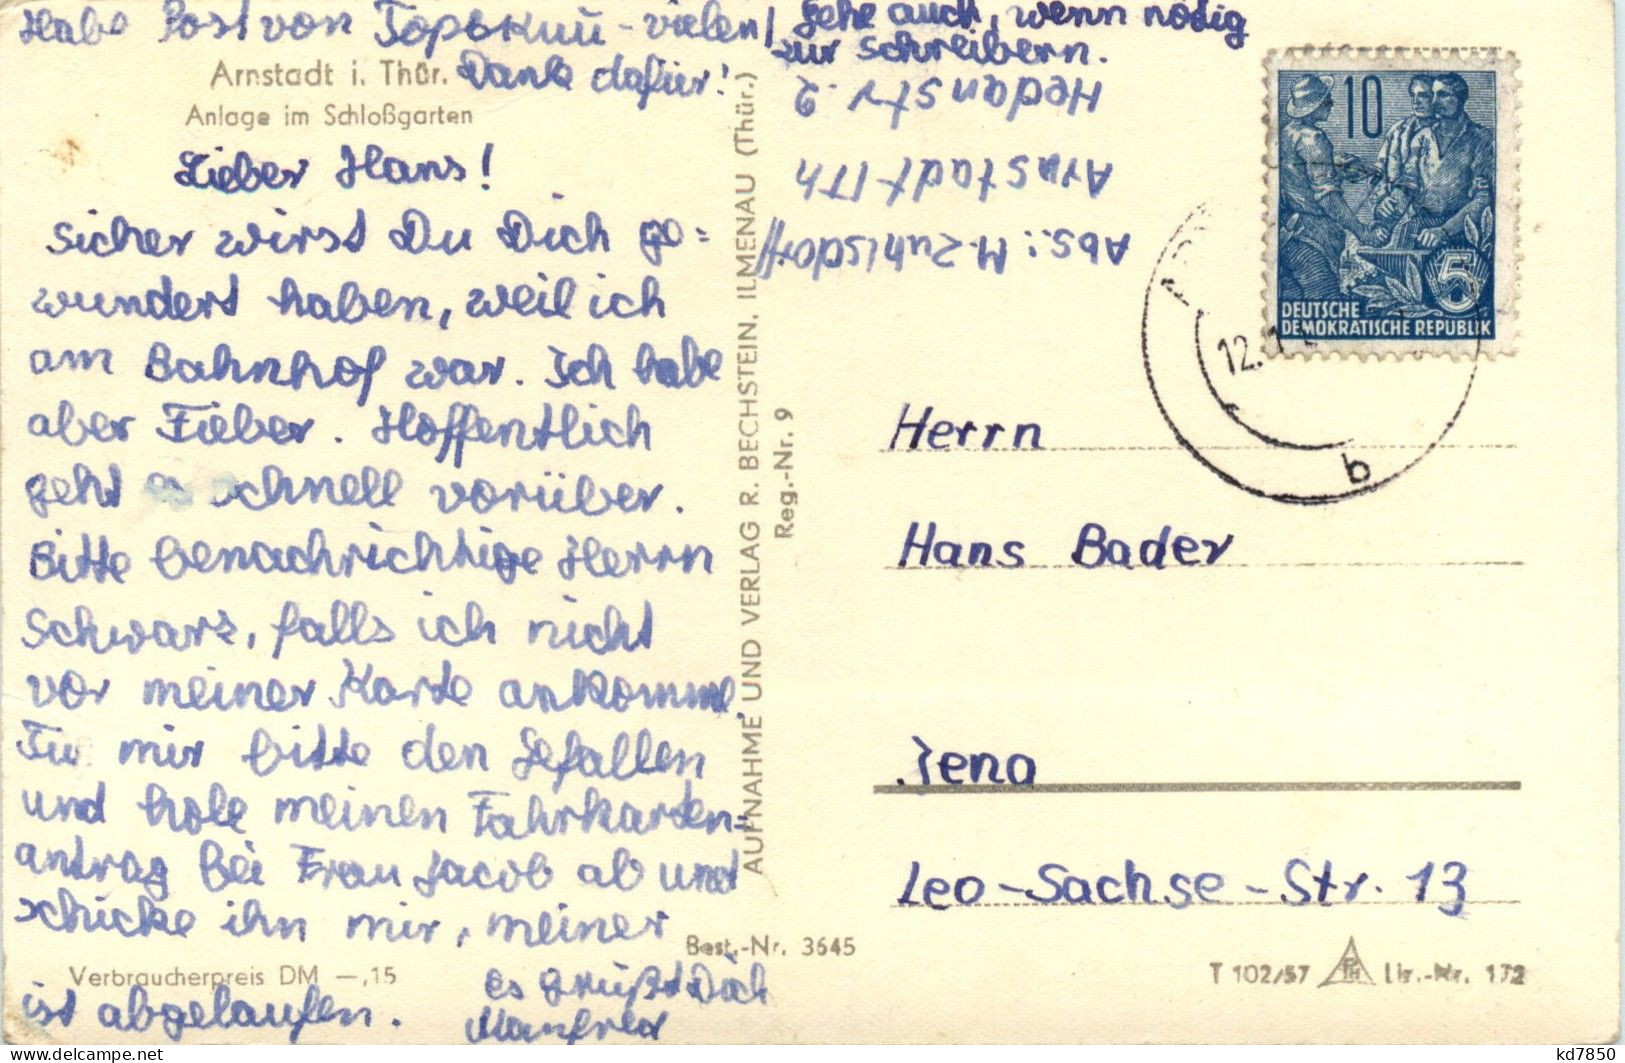 Habe Post von Топокии - vielen
Dank dafür!
gehe auch, wenn nötig
zur Schreibern.
Arnstadt i. Thür.
Anlage im Schloßgarten
Lieber Hans!
sicher wirst Du Dich ge=
wundert haben, weil ich
am Bahnhof war. Ich habe
aber Fieber. Hoffentlich
geht es schnell vorüber.
Bitte benachrichtige Herrn
Schwarz, falls ich nicht
vor meiner Karte ankomme.
Tu mir bitte den Gefallen
und hole meinen Fahrkarten=
antrag bei Frau Jacob ab und
schicke ihn mir, meiner
ist abgelaufen.
es grüßt Dich
Manfred
Verbraucherpreis DM —,15
Best.-Nr. 3645
AUFNAHME UND VERLAG R. BECHSTEIN, ILMENAU (Thür.)
Reg.-Nr. 9
Abs.: M. Zuhlsdorff
Arnstadt/Th
Hedanstr. 2
10
5
DEUTSCHE
DEMOKRATISCHE REPUBLIK
12.
b
Herrn
Hans Bader
Jena
Leo-Sachse-Str. 13
T 102/57 Liz.-Nr. 172
kd7850